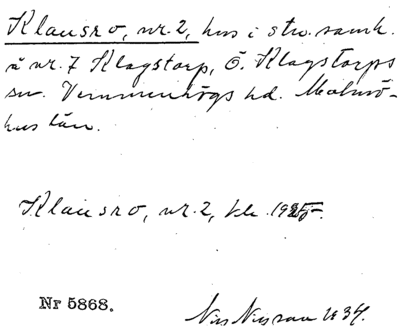 Klausro, nr. 2, hus i stn.samh.
å nr. 7 Klagstorp, Ö. Klagstorps
sn. Vemmenhögs hd. Malmö-
hus län.
Klausro, nr. 2,
Nr 5868.
Nils Nilsson 1934.